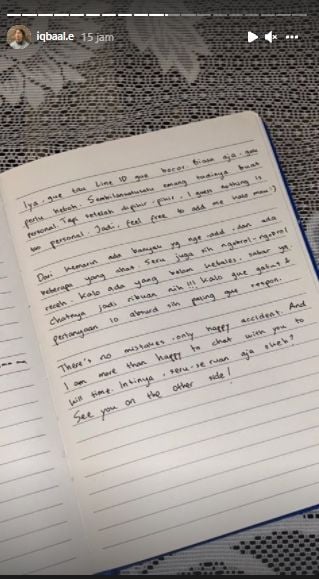 iqbaal.e 15 jam
Iya, gue tau Line ID gue bocor. Biasa aja, gak
perlu heboh. Sembilansatusatu emang tadinya buat
personal. Tapi setelah dipikir-pikir, I guess nothing is
too personal. Jadi, feel free to add me kalo mau :)
Dari kemarin ada banyak yg nge-add, dan ada
beberapa yang chat. Seru juga sih ngobrol-ngobrol
receh. Kalo ada yang belom kebales, sabar ya,
chatnya jadi ribuan nih!!! Kalo gue gabut &
pertanyaan lo absurd sih paling gue respon.
There's no mistakes, only happy accident. And
I am more than happy to chat with you to
kill time. Intinya, seru-seruan aja okeh?
See you on the other side!